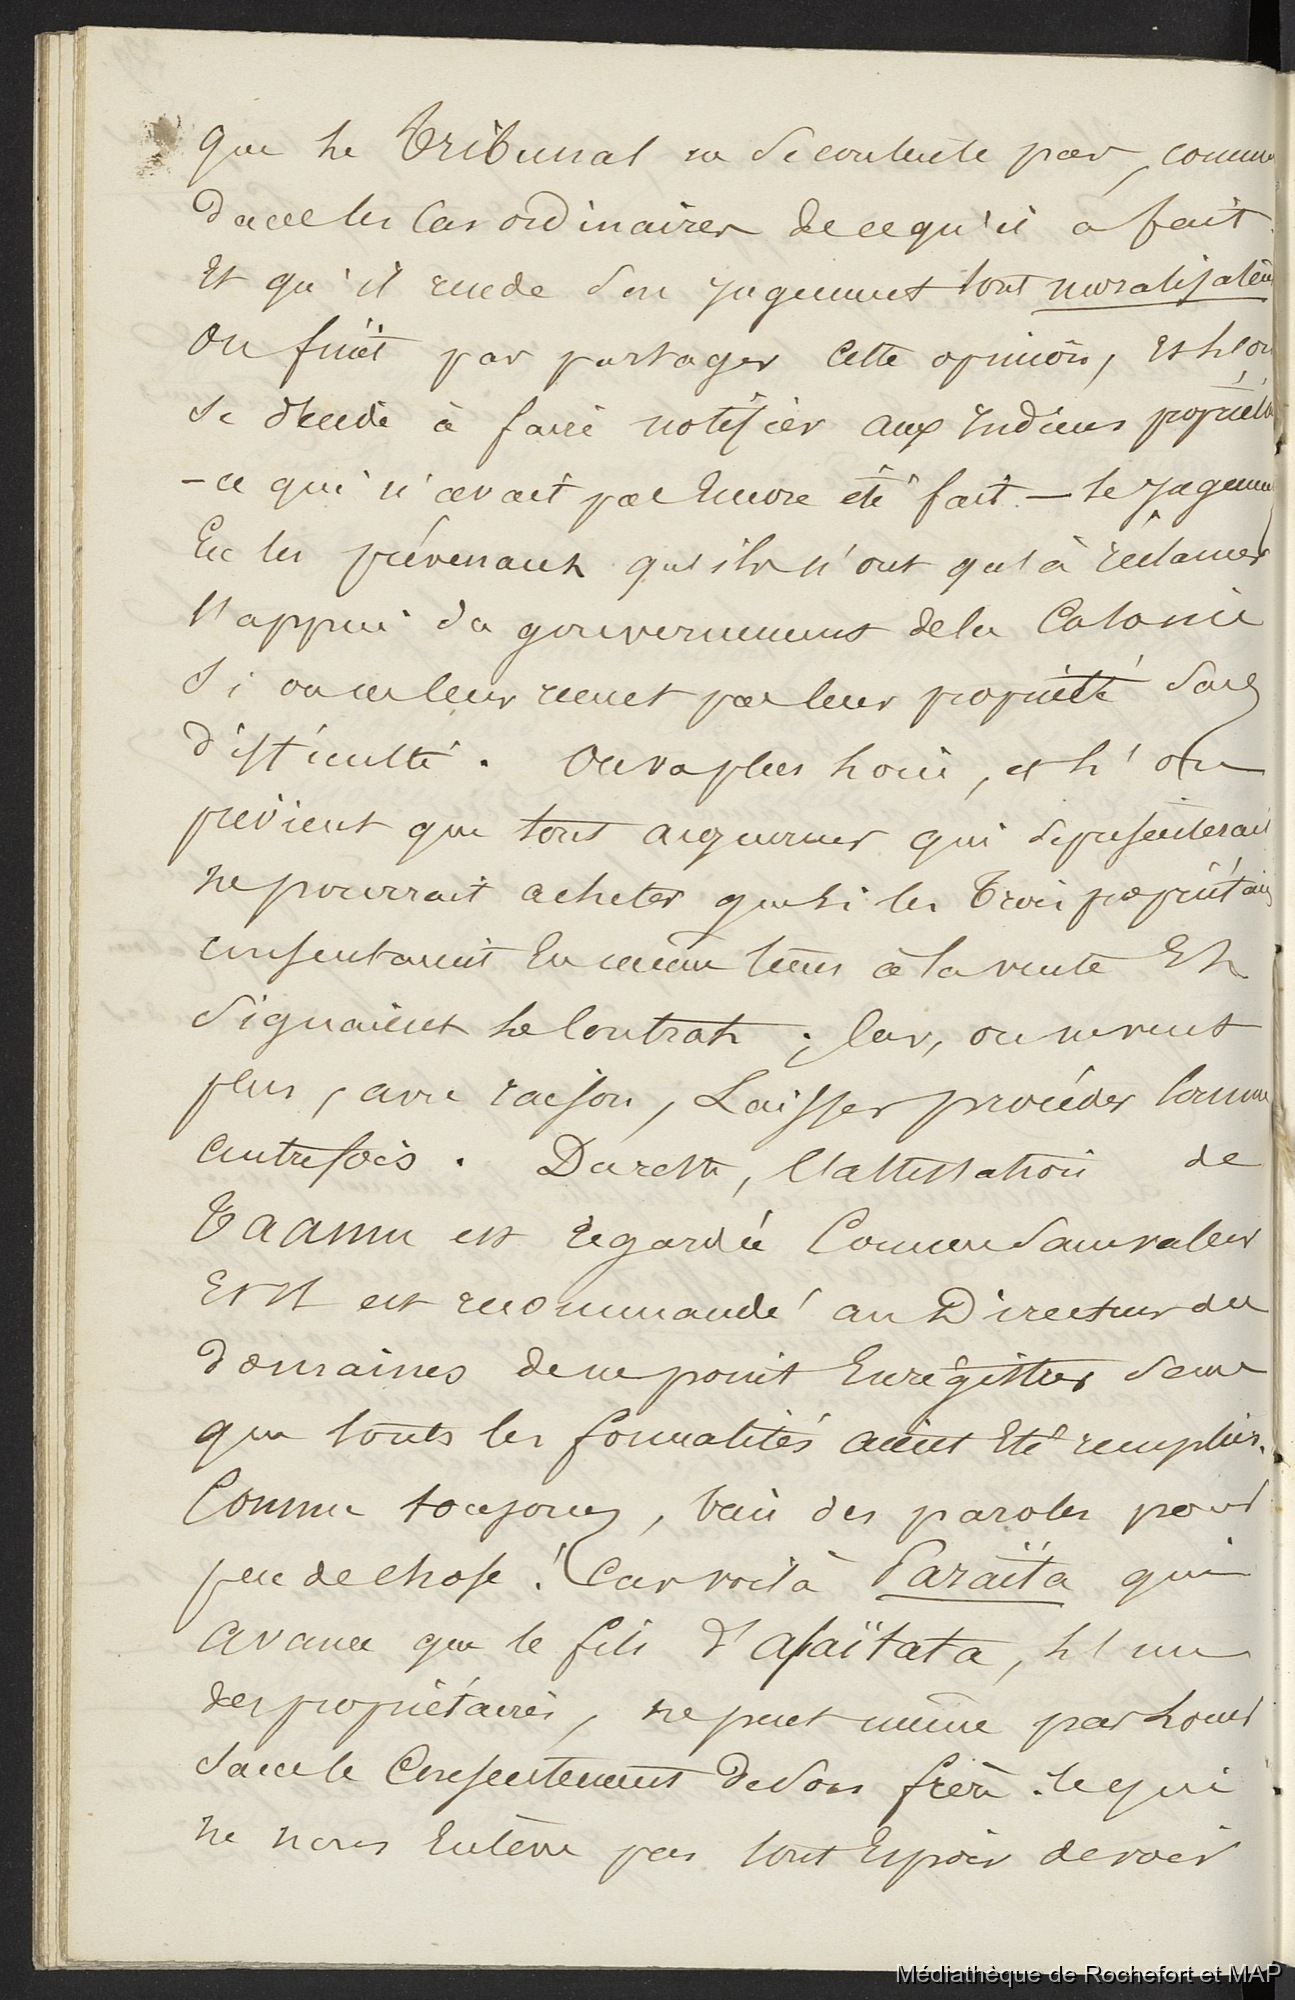 que le Tribunal ne se contente pas, comme
dans les cas ordinaires de ce qu'il a fait
et qu'il rende son jugement tout moralisateur
On finit par partager cette opinion, et l'on
se décide à faire notifier aux Indiens propriét
– ce qui n'avait pas encore été fait – le jugement
En les prévenant qu'ils n'ont qu'à réclamer
l'appui du gouvernement de la Colonie
Si on ne leur remet pas leur propriété sans
difficulté. On va plus loin, et l'on
prévient que tout acquéreur qui se présenterait
ne pourrait acheter que si les trois propriétaires
consentaient en même tems à la vente et
signaient le contrat ; Car, on ne veut
plus, avec raison, laisser procéder comme
autrefois. Du reste, l'attestation de
Taamu est regardée comme sans valeur
et il est recommandé au Directeur des
domaines de ne point Enrégistrer sans
que toutes les formalités aient été remplies.
Comme toujours, bien des paroles pour
peu de chose ! Car voilà Paraïta qui
avance que le fils d'Afaïtata, l'un
des propriétaires, ne peut même pas louer
sans le Consentement de son frère. Ce qui
ne nous enlève pas tout espoir de voir
Médiathèque de Rochefort et MAP